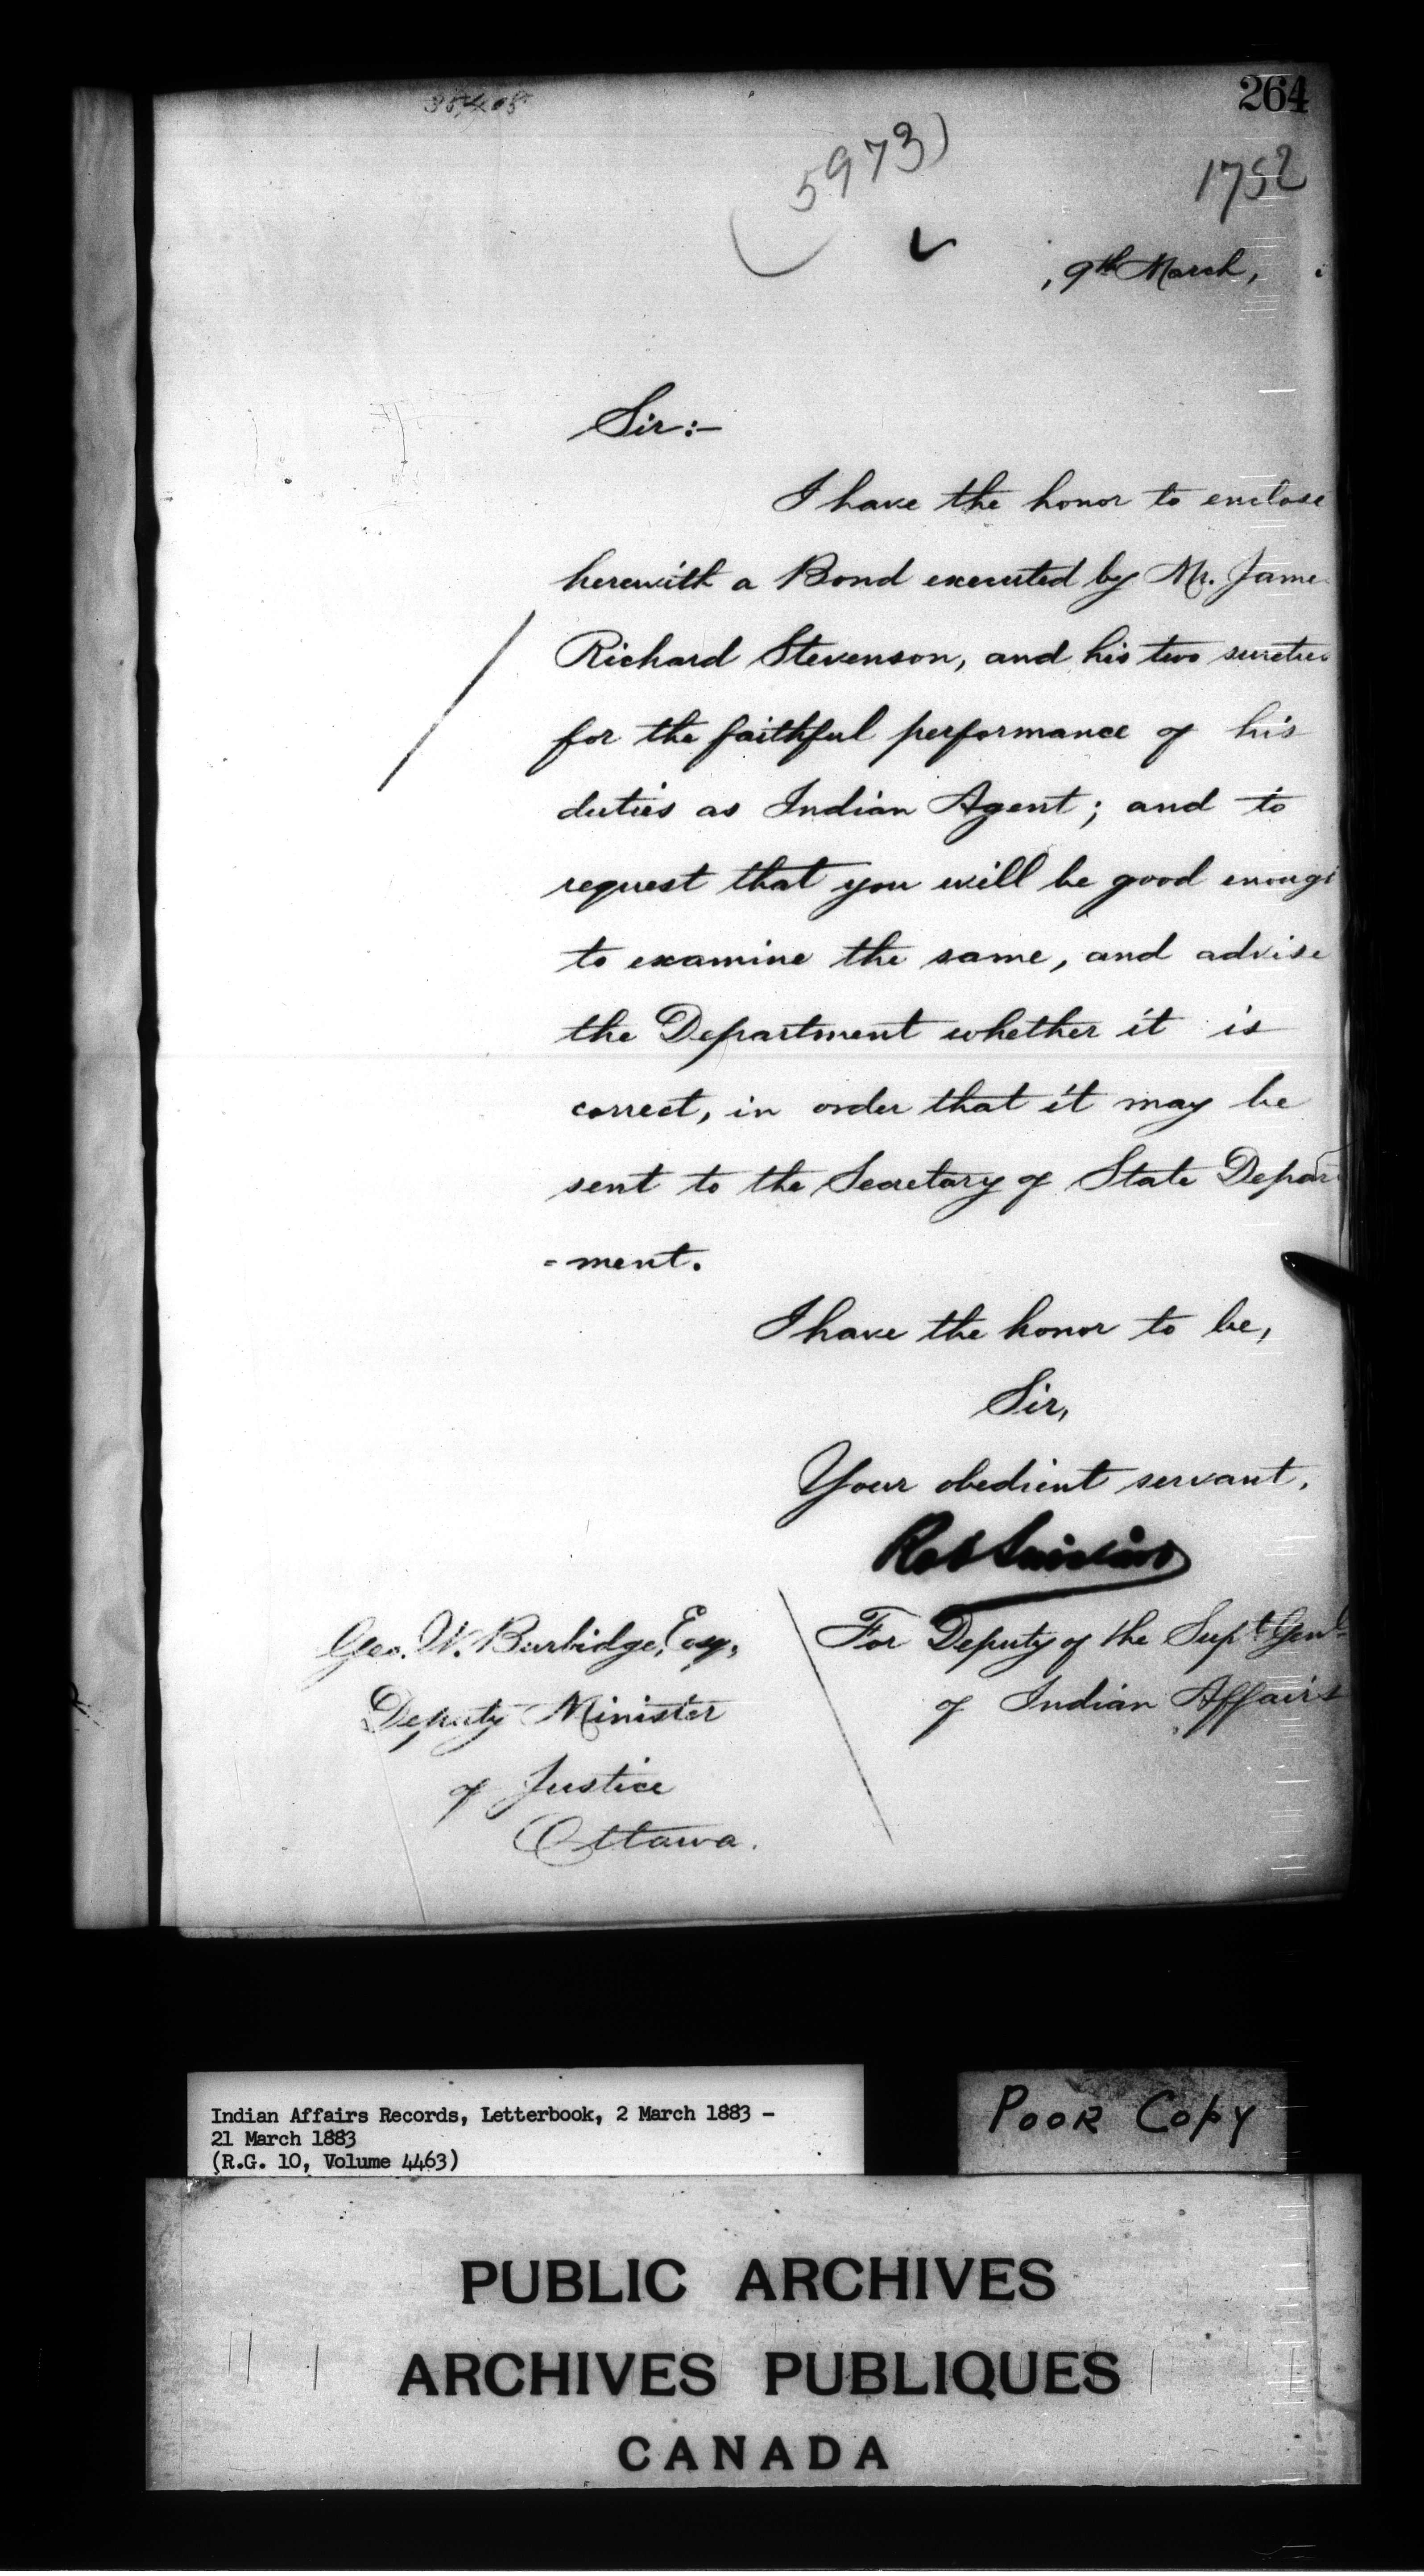 264
(5973)
1752
, 9th March,
Sir:-
I have the honor to enclose
herewith a Bond executed by Mr. Jame
Richard Stevenson, and his two sureties
for the faithful performance of his
duties as Indian Agent; and to
request that you will be good enough
to examine the same, and advise
the Department whether it is
correct, in order that it may be
sent to the Secretary of State Depart
=ment.
I have the honor to be,
Sir,
Your obedient servant,
Geo. W. Burbidge, Esq,
For Deputy of the Supt Genl
Deputy Minister
of Indian Affairs
of Justice
Ottawa.
Indian Affairs Records, Letterbook, 2 March 1883 -
21 March 1883
(R.G. 10, Volume 4463)
POOR COPY
PUBLIC ARCHIVES
ARCHIVES PUBLIQUES
CANADA